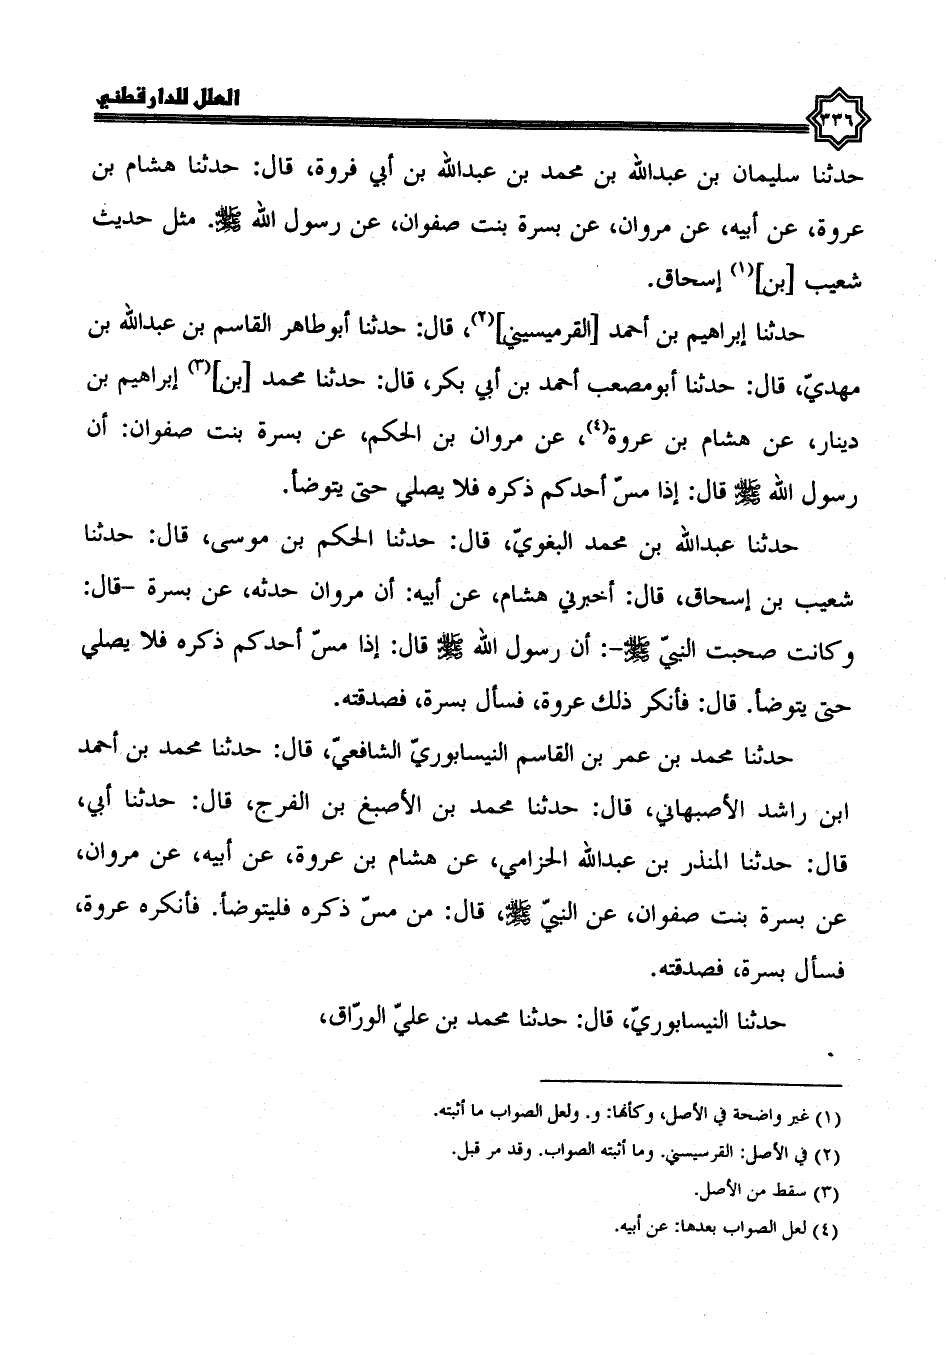 العلل للدارقطني
٣٣٦
حدثنا سليمان بن عبدالله بن محمد بن عبدالله بن أبي فروة، قال: حدثنا هشام بن
عروة، عن أبيه، عن مروان، عن بسرة بنت صفوان، عن رسول الله ﷺ. مثل حديث
شعيب [بن](١) إسحاق.
حدثنا إبراهيم بن أحمد [القرميسيني](٢)، قال: حدثنا أبوطاهر القاسم بن عبدالله بن
مهديّ، قال: حدثنا أبومصعب أحمد بن أبي بكر، قال: حدثنا محمد [بن](٣) إبراهيم بن
دينار، عن هشام بن عروة(٤)، عن مروان بن الحكم، عن بسرة بنت صفوان: أن
رسول الله ﷺ قال: إذا مسّ أحدكم ذكره فلا يصلي حتى يتوضأ.
حدثنا عبدالله بن محمد البغويّ، قال: حدثنا الحكم بن موسى، قال: حدثنا
شعيب بن إسحاق، قال: أخبرني هشام، عن أبيه: أن مروان حدثه، عن بسرة –قال:
وكانت صحبت النبيّ ﷺ–: أن رسول الله ﷺ قال: إذا مسّ أحدكم ذكره فلا يصلي
حتى يتوضأ. قال: فأنكر ذلك عروة، فسأل بسرة، فصدقته.
حدثنا محمد بن عمر بن القاسم النيسابوريّ الشافعيّ، قال: حدثنا محمد بن أحمد
ابن راشد الأصبهاني، قال: حدثنا محمد بن الأصبغ بن الفرج، قال: حدثنا أبي،
قال: حدثنا المنذر بن عبدالله الحزامي، عن هشام بن عروة، عن أبيه، عن مروان،
عن بسرة بنت صفوان، عن النبيّ ﷺ، قال: من مسّ ذكره فليتوضأ. فأنكره عروة،
فسأل بسرة، فصدقته.
حدثنا النيسابوريّ، قال: حدثنا محمد بن عليّ الورّاق،
(١) غير واضحة في الأصل، وكأنها: و. ولعل الصواب ما أثبته.
(٢) في الأصل: القرسيسني. وما أثبته الصواب. وقد مر قبل.
(٣) سقط من الأصل.
(٤) لعل الصواب بعدها: عن أبيه.